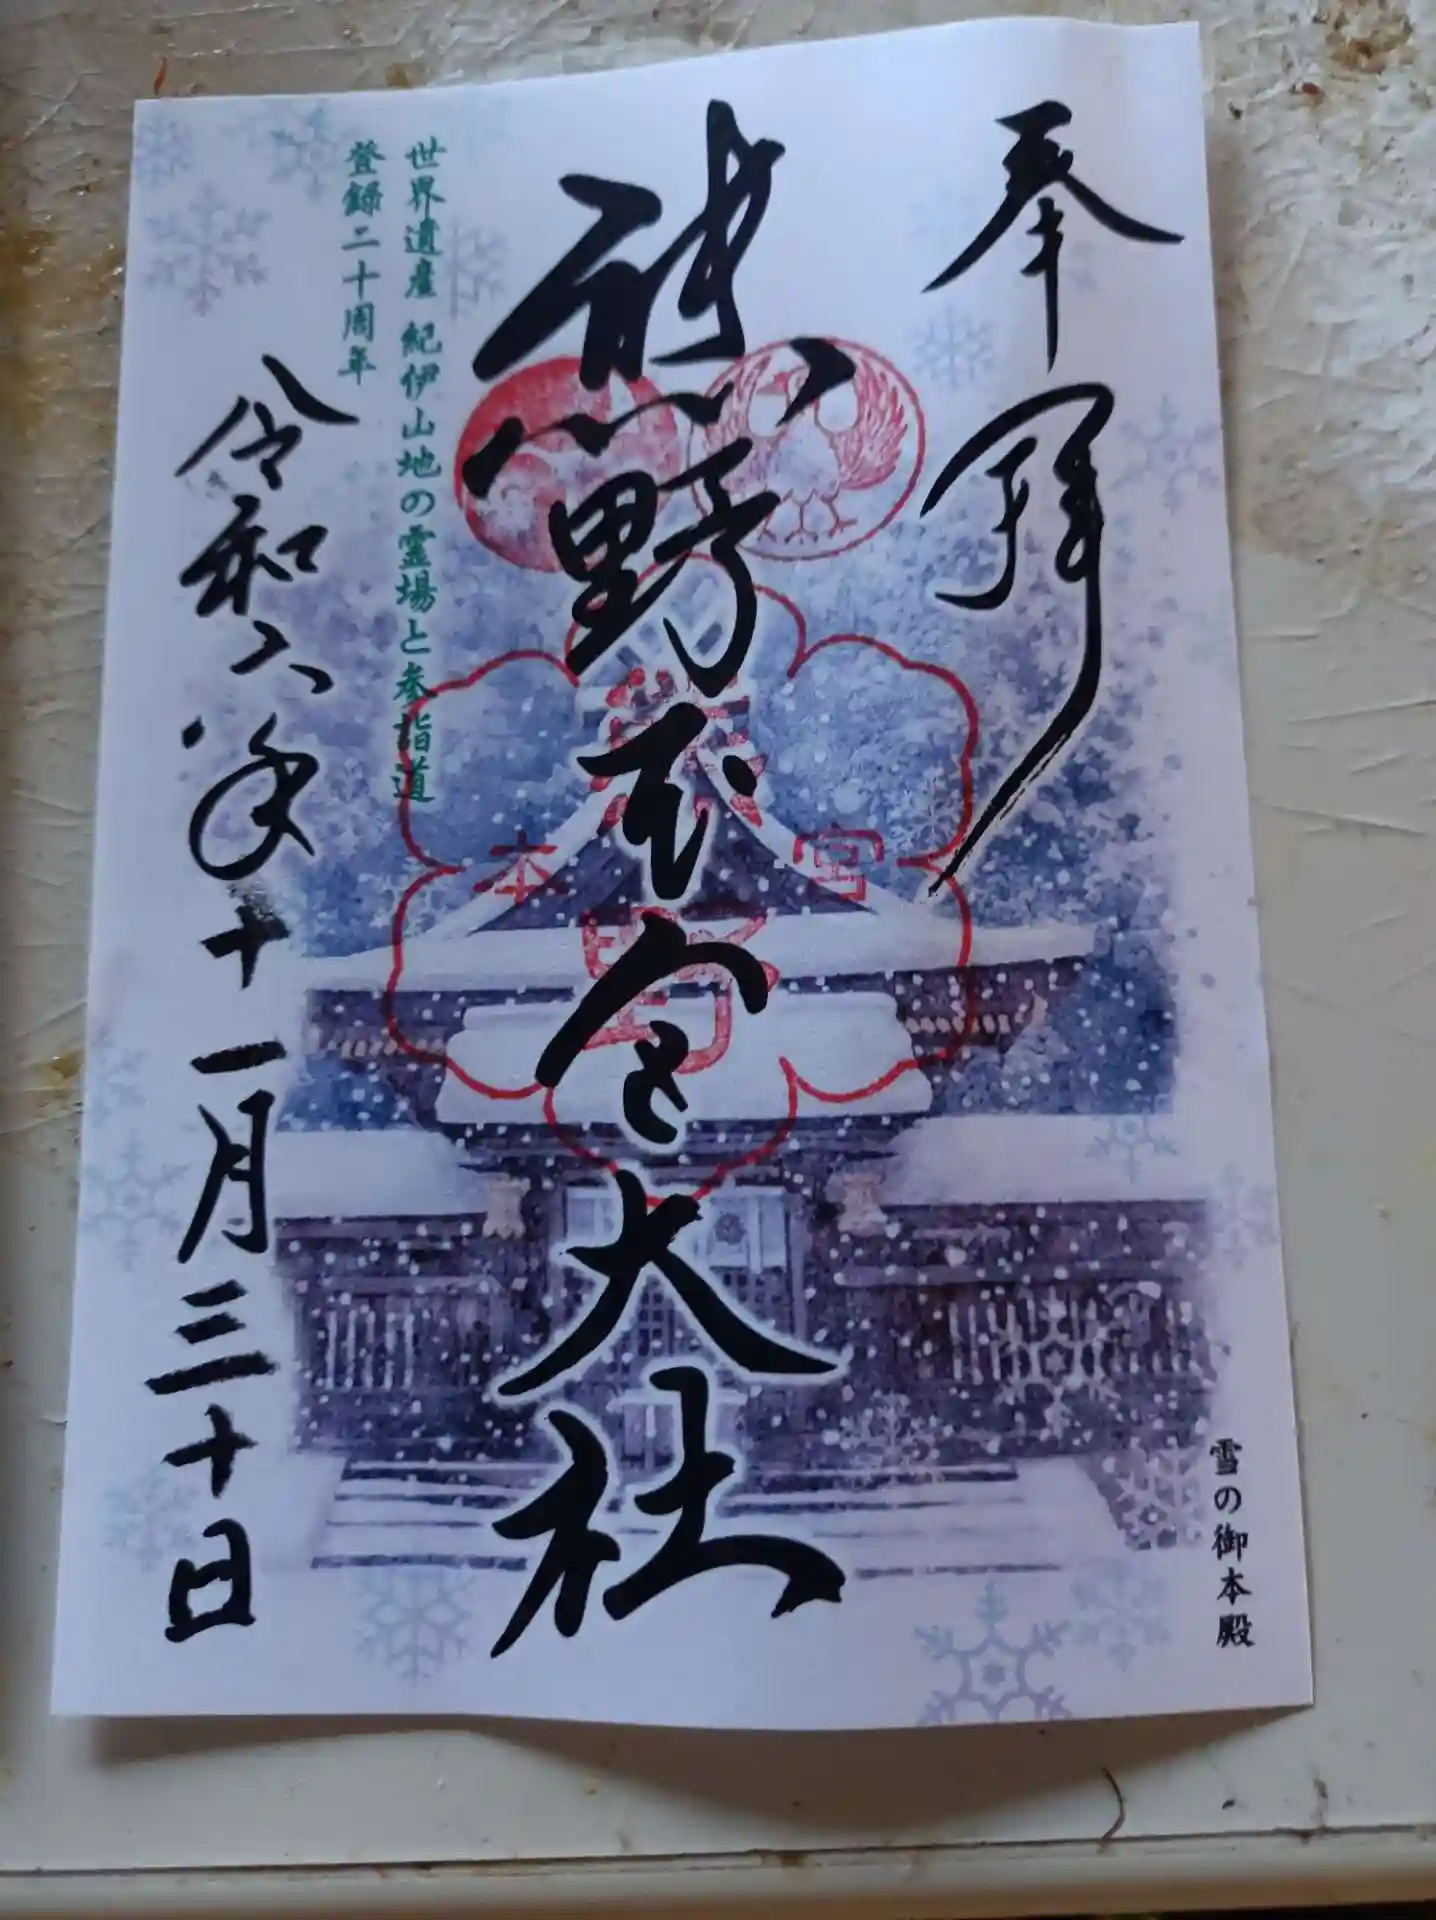 奉拝
雪の御本殿
熊野本宮大社
本宮
世界遺産 紀伊山地の霊場と参詣道
登録二十周年
令和六年十一月三十日